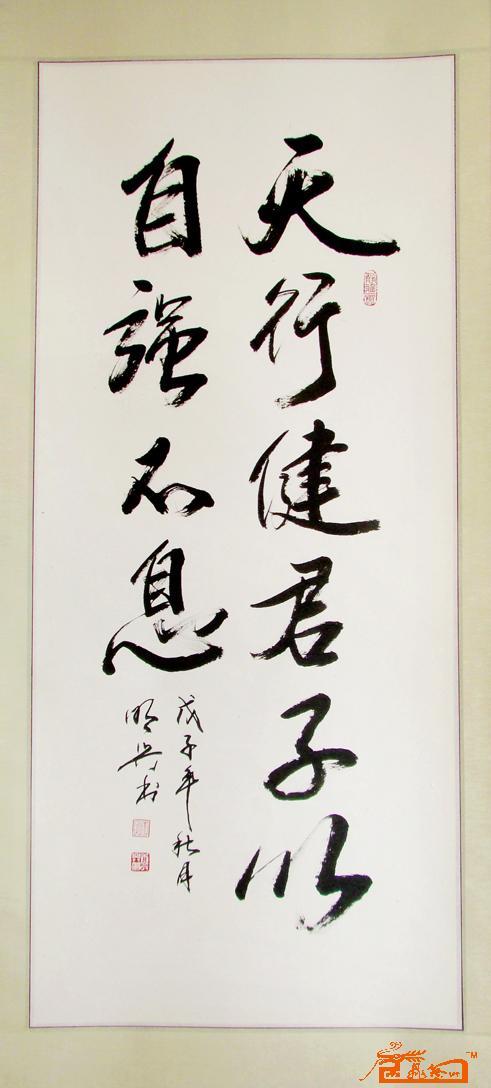 天行健君子以
自强不息
戊子年秋月
明兴书